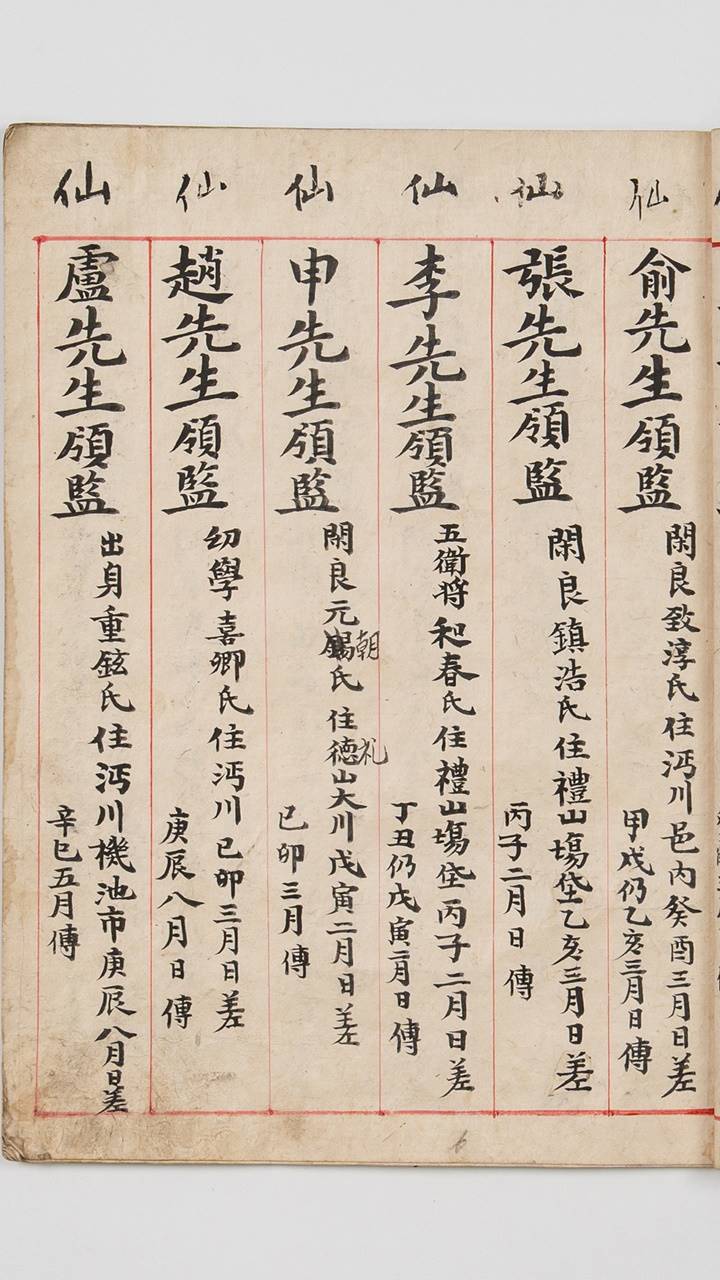 仙
俞先生領監
閑良致淳氏住沔川邑內癸酉三月日差
甲戌仍乙亥三月日傳
仙
張先生領監
閑良鎮浩氏住禮山塲垈乙亥三月日差
丙子二月日傳
仙
李先生領監
五衛將和春氏住禮山塲垈丙子二月日差
丁丑仍戊寅二月日傳
仙
申先生領監
閑良元錫氏住德山大川戊寅二月日差
朝
礼
己卯三月傳
仙
趙先生領監
幼學喜卿氏住沔川己卯三月日差
庚辰八月日傳
仙
盧先生領監
出身重鉉氏住沔川機池市庚辰八月日差
辛巳五月傳